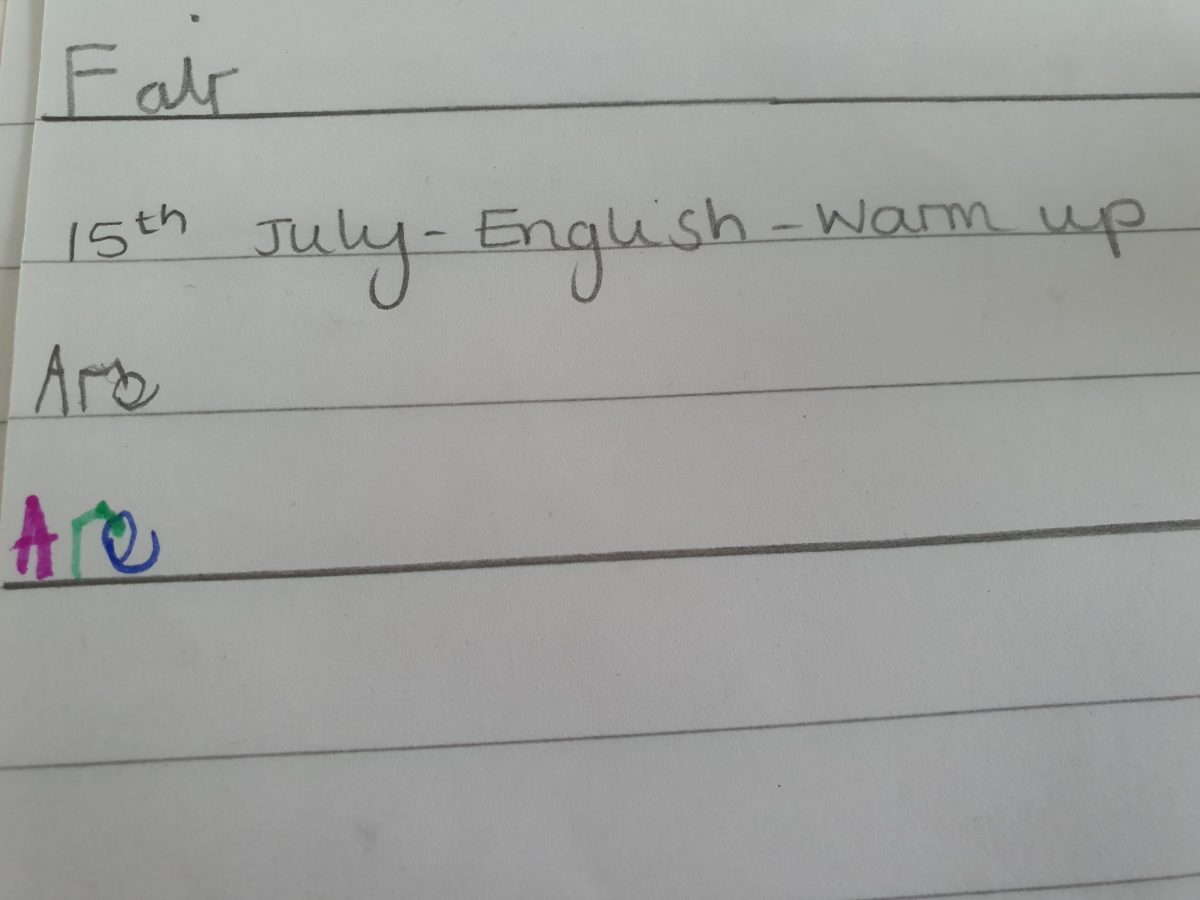 Fair
15th July - English - Warm up
Are
Are